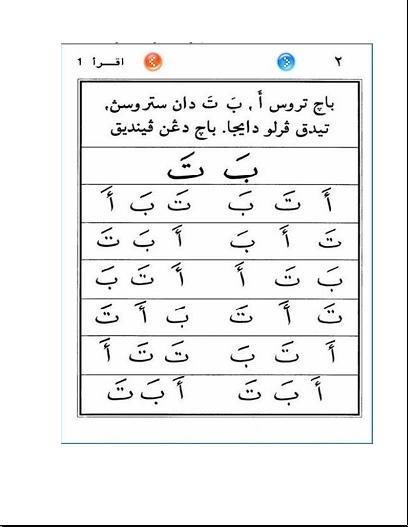 ٢ اقرأ 1
باچ تروس أَ ، بَ تَ دان ستروسڽ,
تيدق ڤرلو دايجا. باچ دڠن ڤينديق
بَ تَ
أَ تَ بَ تَ بَ أَ
تَ أَ بَ أَ بَ تَ
بَ تَ أَ أَ تَ بَ
تَ أَ تَ بَ أَ تَ
أَ تَ بَ تَ تَ أَ
أَ بَ تَ أَ بَ تَ